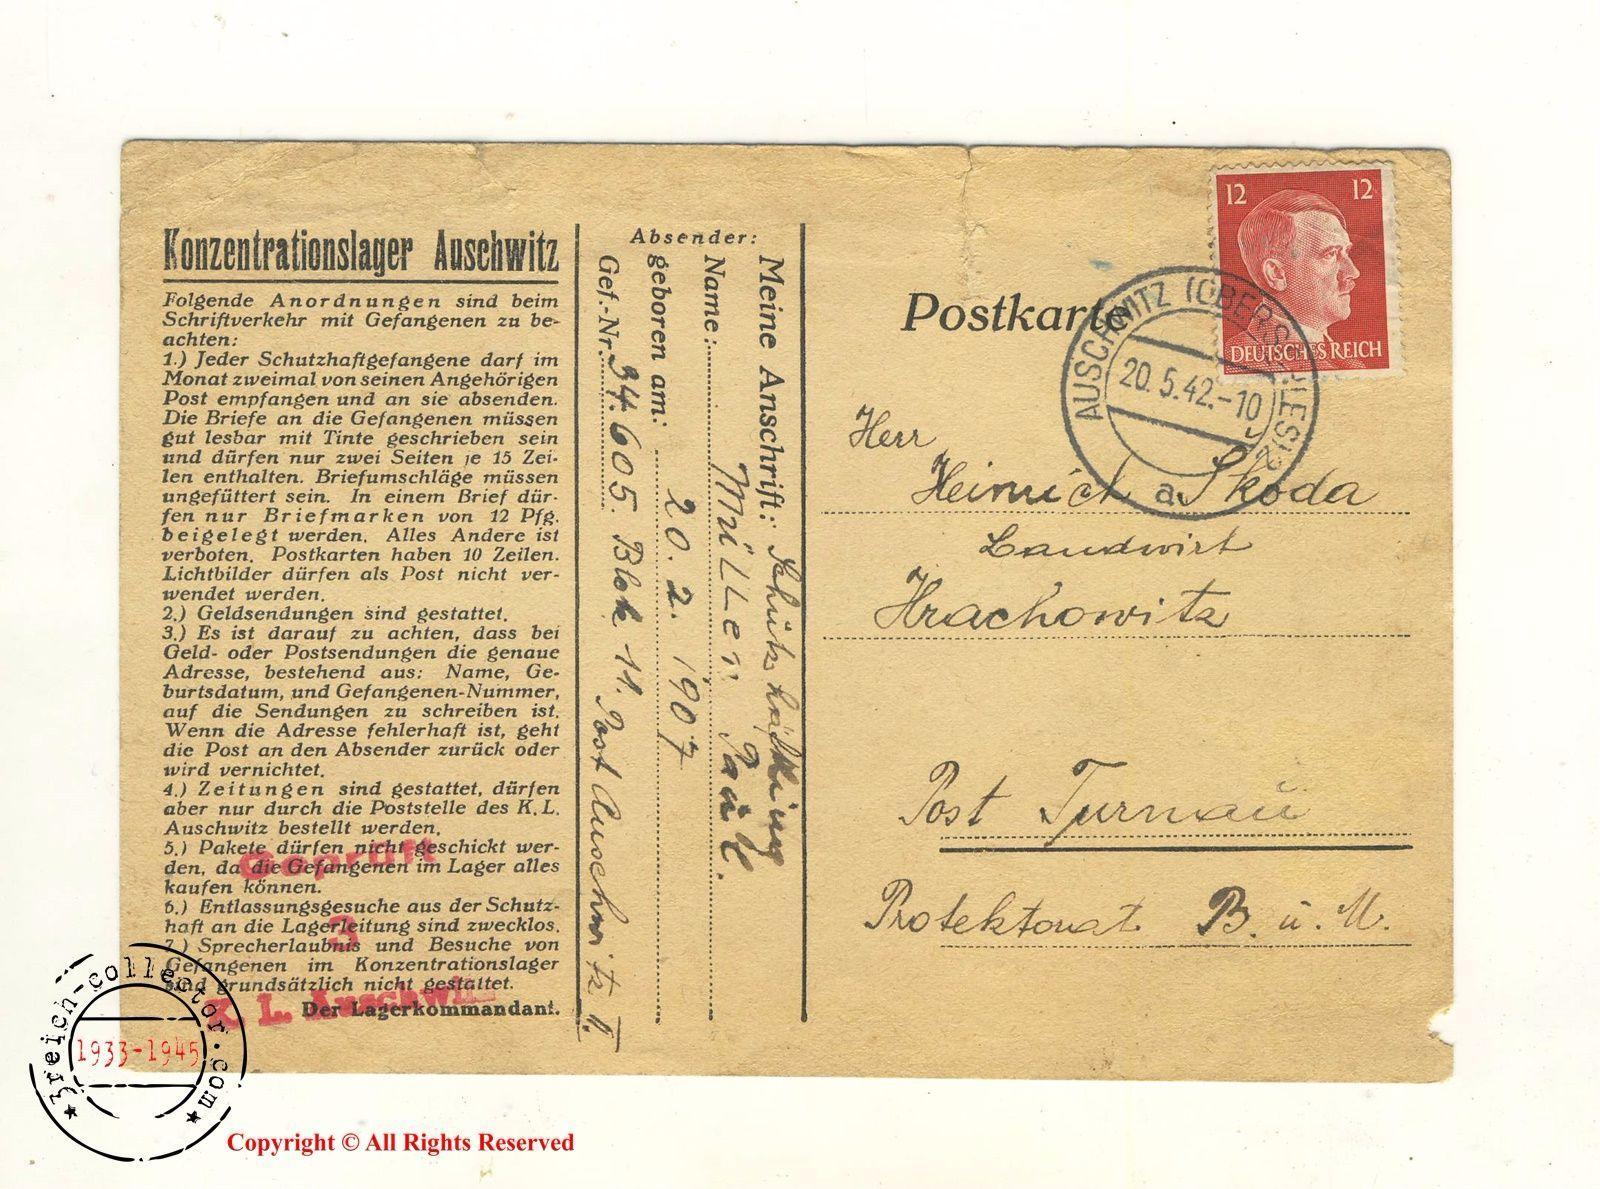 Konzentrationslager Auschwitz
Folgende Anordnungen sind beim
Schriftverkehr mit Gefangenen zu be-
achten:
1.) Jeder Schutzhaftgefangene darf im
Monat zweimal von seinen Angehörigen
Post empfangen und an sie absenden.
Die Briefe an die Gefangenen müssen
gut lesbar mit Tinte geschrieben sein
und dürfen nur zwei Seiten je 15 Zei-
len enthalten. Briefumschläge müssen
ungefüttert sein. In einem Brief dür-
fen nur Briefmarken von 12 Pfg.
beigelegt werden. Alles Andere ist
verboten. Postkarten haben 10 Zeilen.
Lichtbilder dürfen als Post nicht ver-
wendet werden.
2.) Geldsendungen sind gestattet.
3.) Es ist darauf zu achten, dass bei
Geld- oder Postsendungen die genaue
Adresse, bestehend aus: Name, Ge-
burtsdatum, und Gefangenen-Nummer,
auf die Sendungen zu schreiben ist.
Wenn die Adresse fehlerhaft ist, geht
die Post an den Absender zurück oder
wird vernichtet.
4.) Zeitungen sind gestattet, dürfen
aber nur durch die Poststelle des K.L.
Auschwitz bestellt werden.
5.) Pakete dürfen nicht geschickt wer-
den, da die Gefangenen im Lager alles
kaufen können.
6.) Entlassungsgesuche aus der Schutz-
haft an die Lagerleitung sind zwecklos.
7.) Sprecherlaubnis und Besuche von
Gefangenen im Konzentrationslager
sind grundsätzlich nicht gestattet.
Der Lagerkommandant.
Geprüft
3
K. L. Auschwitz
Absender:
Meine Anschrift:
Name: Müller Paul.
geboren am: 20.2.1907
Gef.-Nr. 34.605. Block 11. Post Auschwitz II.
Postkarte
12 12
DEUTSCHES REICH
AUSCHWITZ (OBERSCHLES)
20.5.42.-10
a
Herr
Heinrich Skoda
Landwirt
Hrachowitz
Post Turnau
Protektorat B. u. M.
*3reich-collector.com*
1933-1945
Copyright © All Rights Reserved